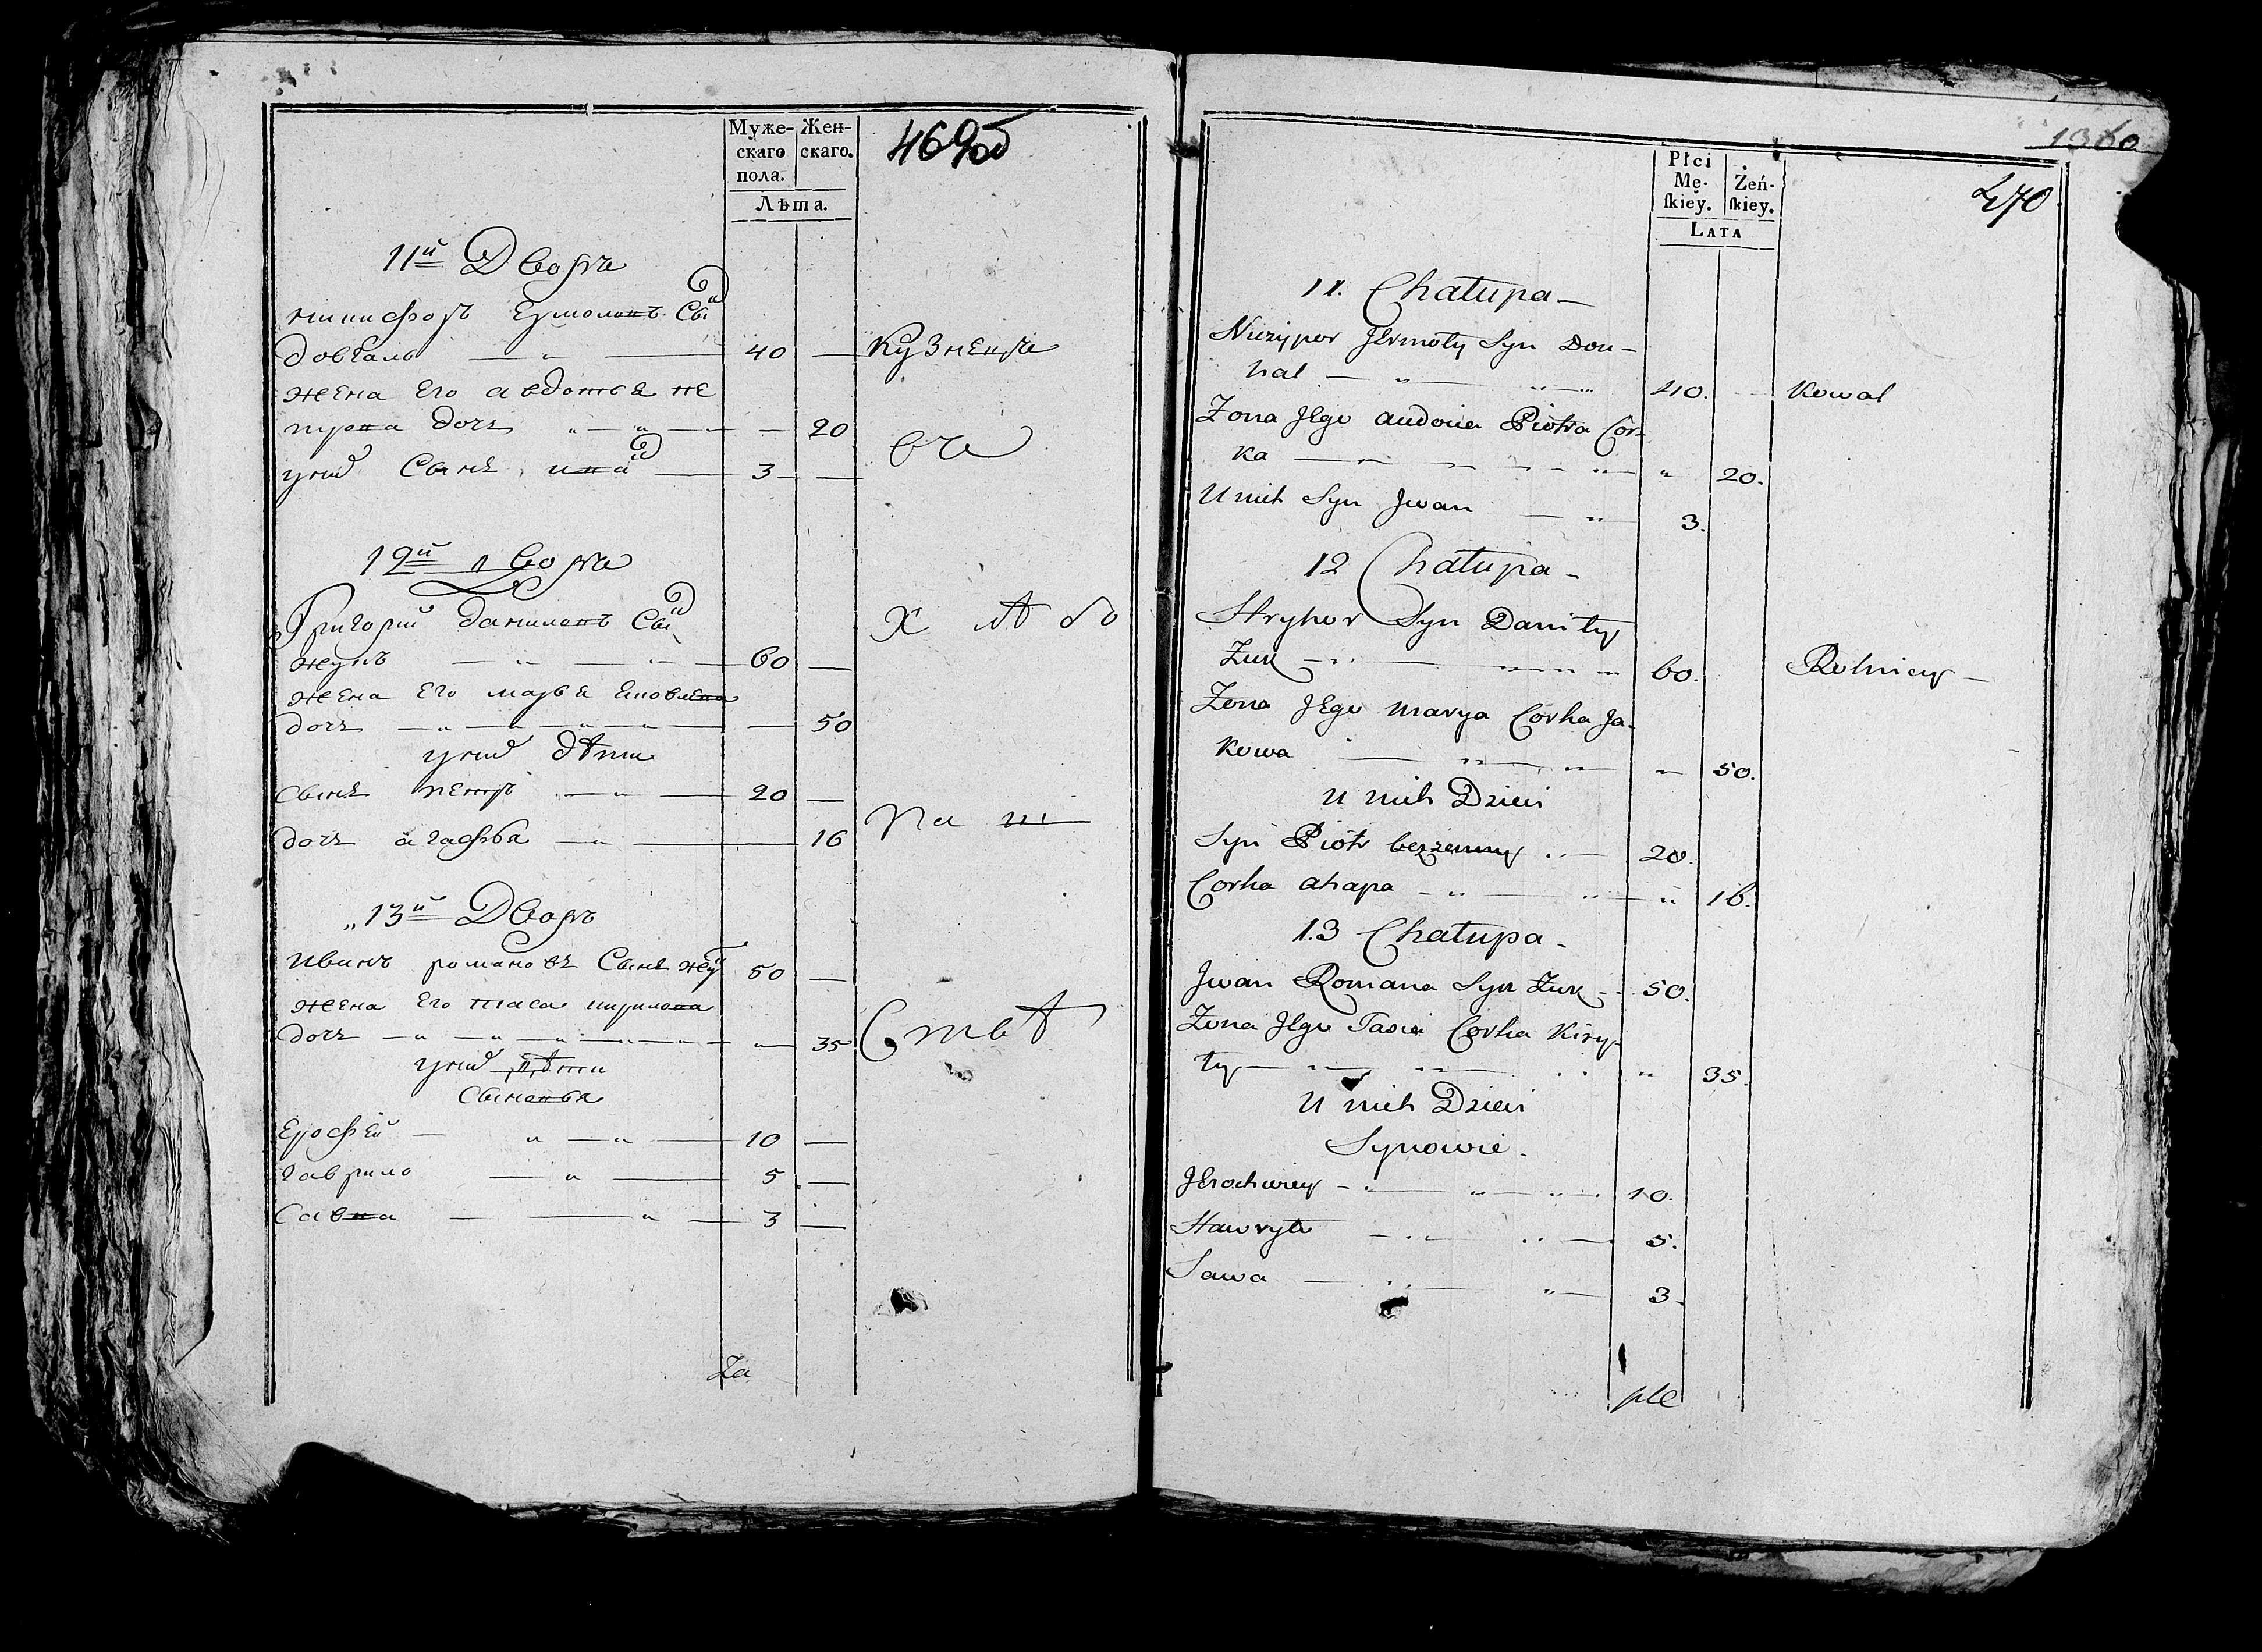 Муже-
скаго
пола.
Жен-
скаго.
Лѣта.
469об
11й Дворъ
никифоръ Ермоловъ Сы
довгаль 40 кузнецъ
жена Его авдотья пе
трова дочь 20
унихъ Сынъ иванъ 3
12й дворъ
Григорий даниловъ Сы
жукъ 60
жена Его марья яковлева
дочь 50
унихъ дѣти
Сынъ петръ 20
дочь агафья 16
13й Дворъ
иванъ романовъ Сынъ жу 50
жена Его таса кирилова
дочь 35
унихъ дѣти
Сыновья
Ерофѣй 10
гаврило 5
Савка 3
Х лѣ бо
па ш
Ствѣ
Za
1360
470
Płci
Mę-
skiey.
Żeń-
skiey.
LATA
11. Chałupa
Niczypor Jermoły Syn Dou-
hal 40. Kowal
Zona Jego audocia Piotra Cor-
ka 20.
U nich Syn Jwan 3.
12 Chałupa
Hryhor Syn Daniły
Zuk 60. Rolnicy
Zona Jego Marya Corka Ja-
kowa 50.
U nich Dzieci
Syn Piotr bezżenny 20.
Corka ahapa 16.
13 Chałupa
Jwan Romana Syn Zuk 50.
Zona Jego Tasia Corka Kiry-
ły 35.
U nich Dzieci
Synowie
Jerochwiey 10.
Hawryło 5.
Sawa 3.